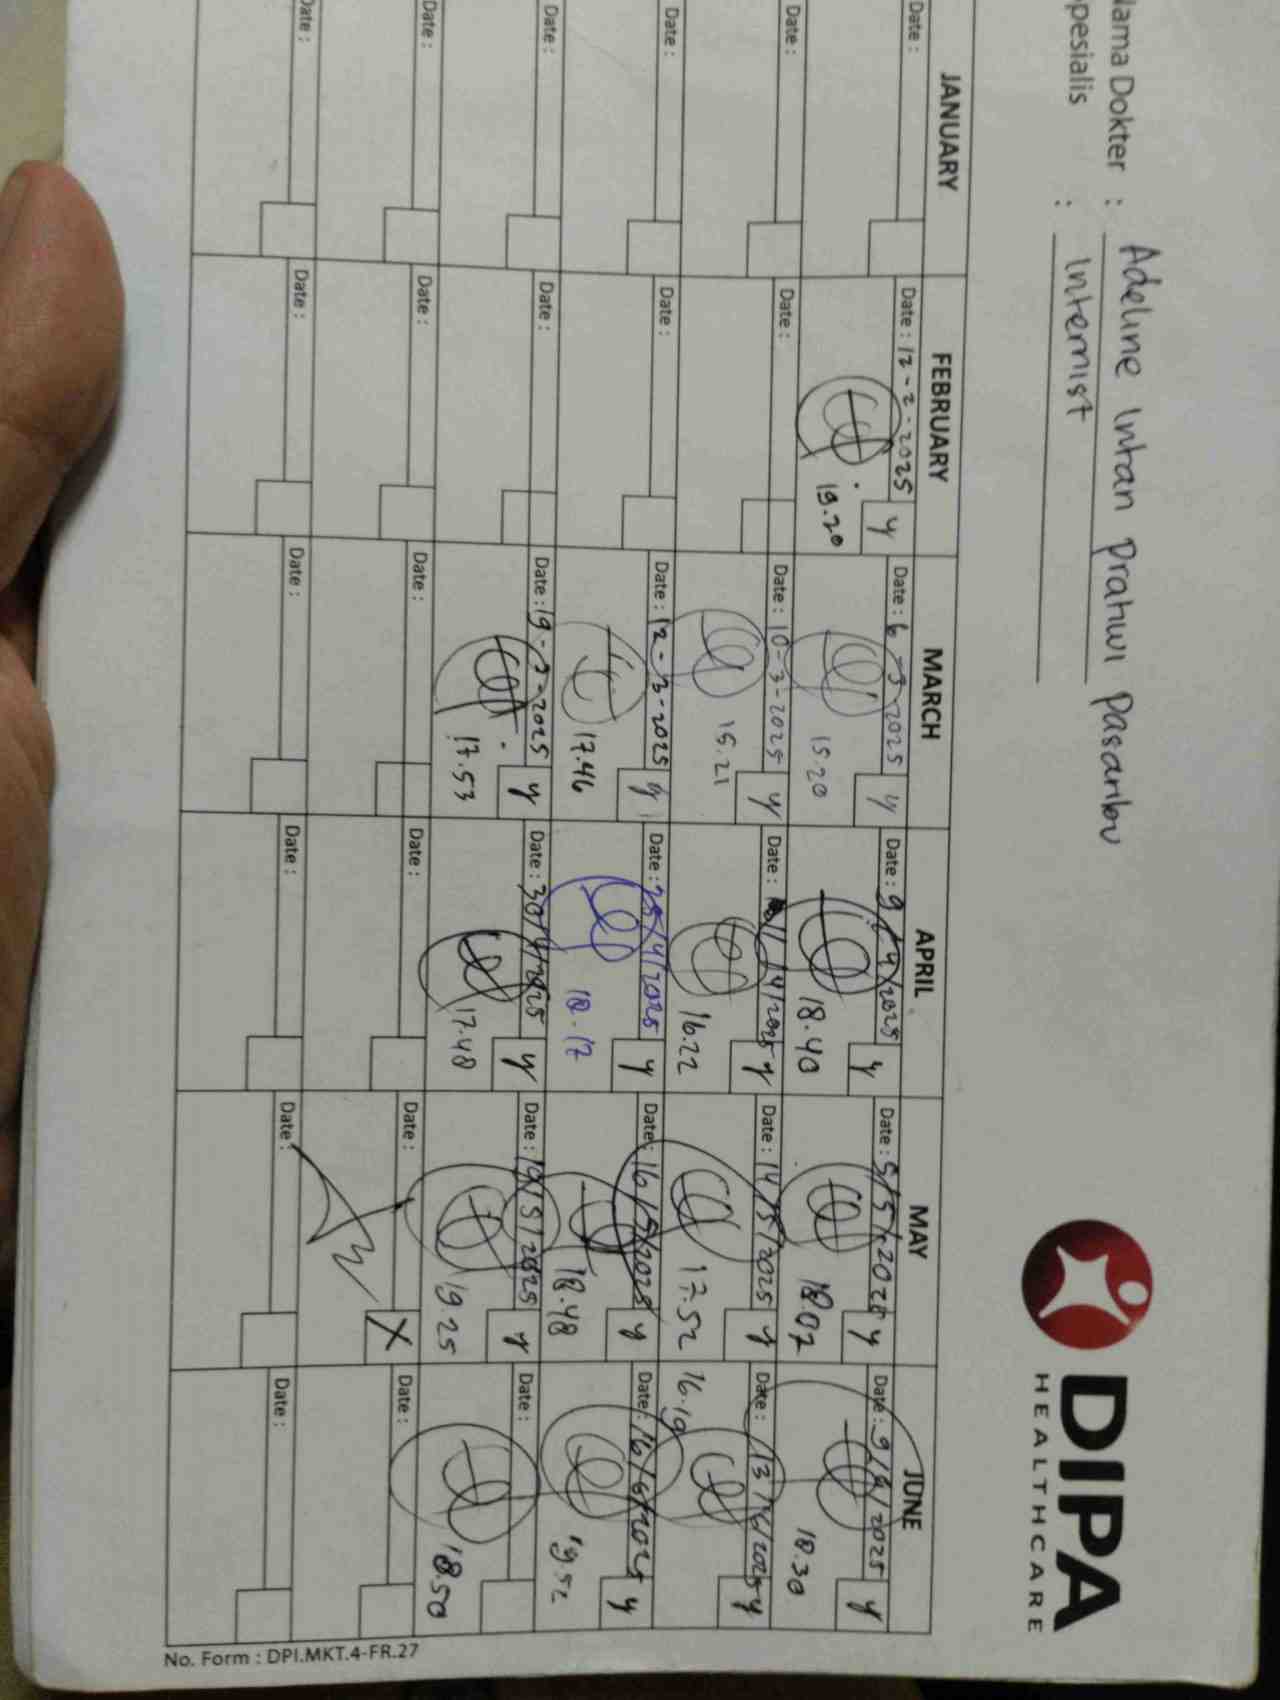 Nama Dokter : Adeline Intan Prahwi Pasaribu
Spesialis : Internist
DIPA
HEALTHCARE
JANUARY FEBRUARY MARCH APRIL MAY JUNE
Date : Date : 12-2-2025 y Date : 6-3-2025 y Date : 9/4/2025 y Date : 5/5/2025 y Date : 9/6/2025 y
19.20 15.20 18.40 18.07 18.30
Date : Date : Date : 10-3-2025 y Date : 11/4/2025 y Date : 14/5/2025 y Date : 13/6/2025 y
15.21 16.22 17.52 16.19
Date : Date : Date : 12-3-2025 y Date : 25/4/2025 y Date : 16/5/2025 y Date : 16/6/2025 y
17.46 18.17 18.48 19.52
Date : Date : Date : 19-3-2025 y Date : 30/4/2025 y Date : 19/5/2025 y Date :
17.53 17.48 19.25 18.50
Date : Date : Date : Date : Date : X Date :
Date : Date : Date : Date : Date : Date :
No. Form : DPI.MKT.4-FR.27